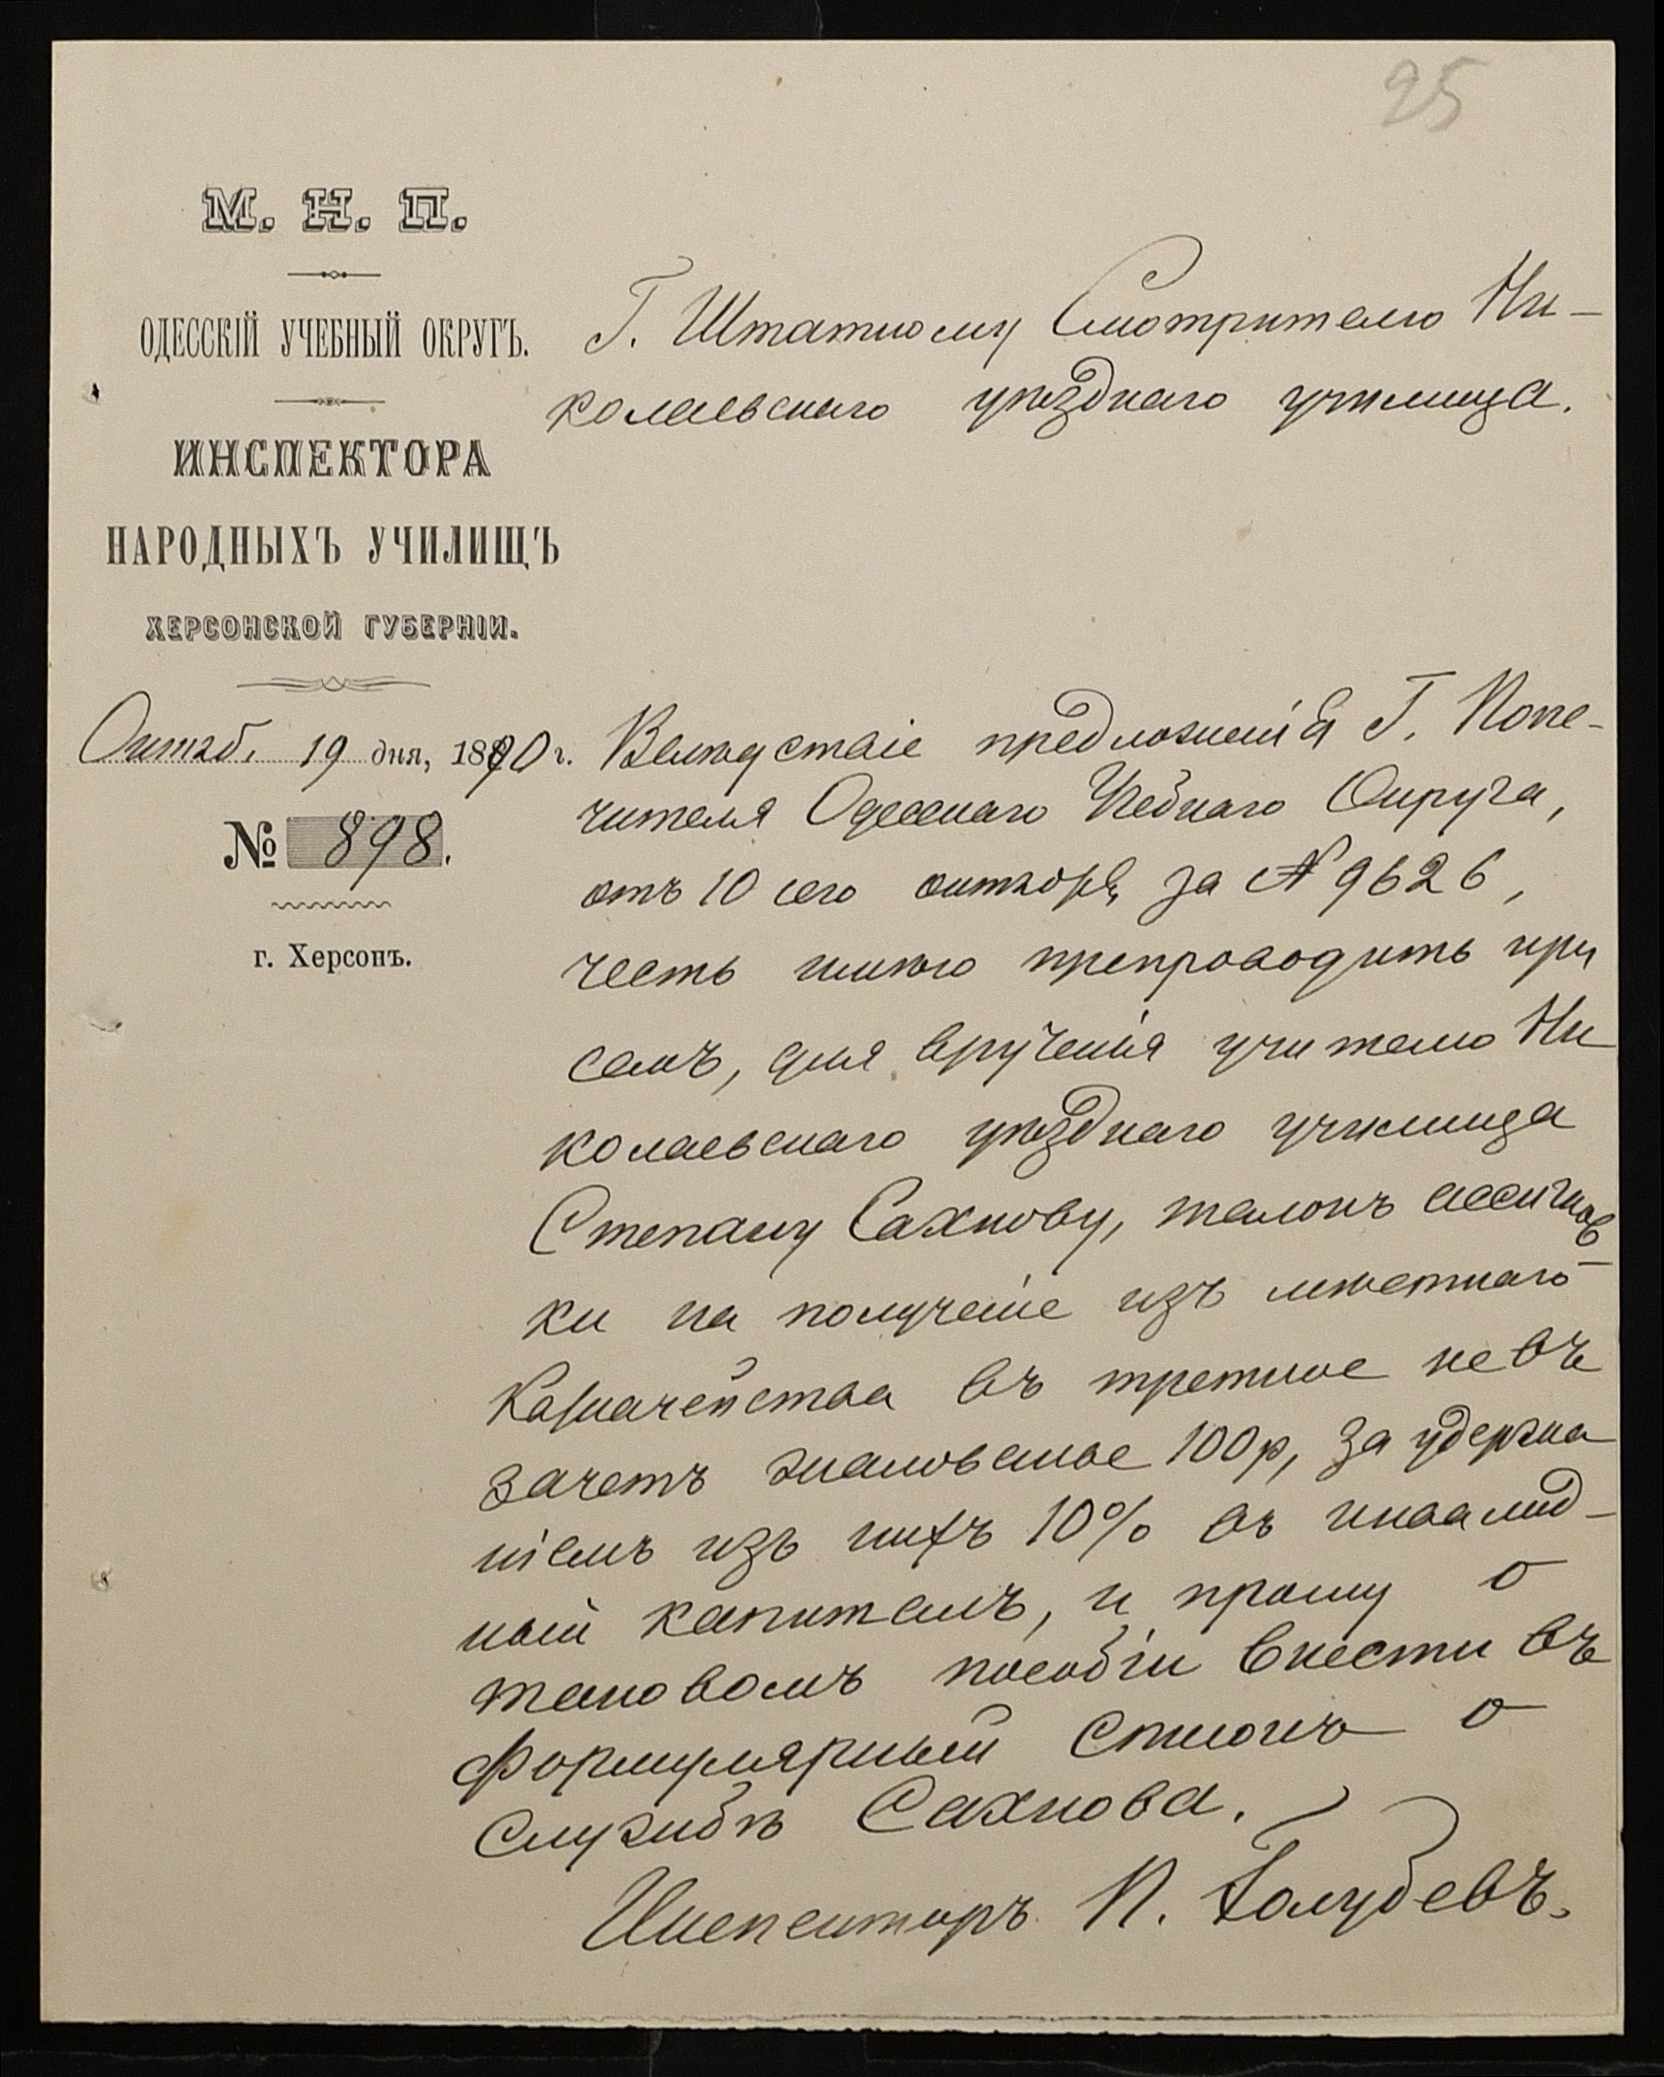 25
М. Н. П.
ОДЕССКІЙ УЧЕБНЫЙ ОКРУГЪ.
ИНСПЕКТОРА
НАРОДНЫХЪ УЧИЛИЩЪ
ХЕРСОНСКОЙ ГУБЕРНІИ.
Октяб. 19 дня, 1890 г.
№ 898.
г. Херсонъ.
Г. Штатному Смотрителю Ни-
колаевскаго уѣзднаго училища.
Вслѣдствіе предложенія Г. Попе-
чителя Одесскаго Учебнаго Округа,
отъ 10 сего октября за № 9626,
честь имѣю препроводить при
семъ, для врученія учителю Ни
колаевскаго уѣзднаго училища
Степану Сахнову, талонъ ассигнов
ки на полученіе изъ мѣстнаго
Казначейства въ третное не въ
зачетъ жалованье 100 р, за удержа
ніемъ изъ нихъ 10% въ инвалид-
ный капиталъ, и прошу о
таковомъ пособіи внести въ
формулярный списокъ о
службѣ Сахнова.
Инспекторъ П. Голубевъ.